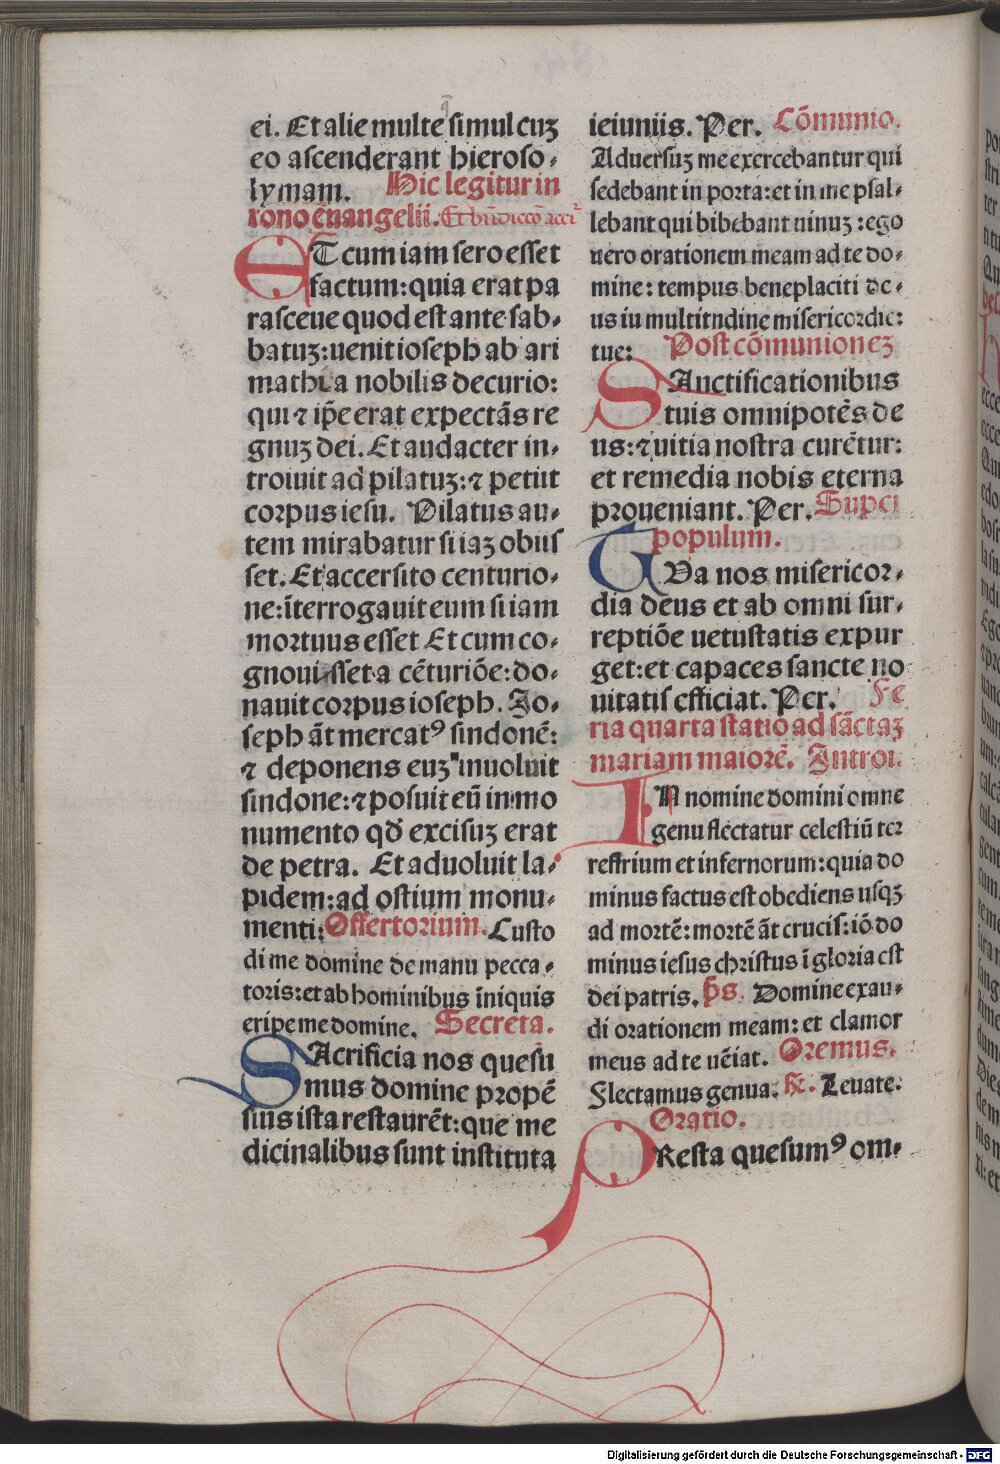 ei. Et alie multe simul cuʒ
eo ascenderant hieroso-
lymam. Hic legitur in
tono euangelii. Et bñdiccõ acci
ET cum iam sero esset
factum: quia erat pa
rasceue quod est ante sab-
batuʒ: uenit ioseph ab ari
mathia nobilis decurio:
qui ⁊ ip̃e erat expectãs re
gnuʒ dei. Et audacter in-
troiuit ad pilatuʒ: ⁊ petiit
corpus iesu. Pilatus au-
tem mirabatur si iaʒ obiis
set. Et accersito centurio-
ne: ĩterrogauit eum si iam
mortuus esset Et cum co-
gnouisset a cẽturiõe: do-
nauit corpus ioseph. Io-
seph ãt mercatꝰ sindonẽ:
⁊ deponens euʒ inuoluit
sindone: ⁊ posuit eũ in mo
numento qd̃ excisuʒ erat
de petra. Et aduoluit la-
pidem: ad ostium monu-
menti: Offertorium. Custo
di me domine de manu pecca-
toris: et ab hominibus ĩniquis
eripe me domine. Secreta.
SAcrificia nos quesu
mus domine propẽ
sius ista restaurẽt: que me
dicinalibus sunt instituta
ieiuniis. Per. Cõmunio.
Aduersuʒ me exercebantur qui
sedebant in porta: et in me psal-
lebant qui bibebant uinuʒ: ego
uero orationem meam ad te do-
mine: tempus beneplaciti de-
us in multitudine misericordie:
tue: Post cõmunioneʒ
SAnctificationibus
tuis omnipotẽs de
us: ⁊ uitia nostra curẽtur:
et remedia nobis eterna
proueniant. Per. Super
populum.
TVa nos misericor-
dia deus et ab omni sur-
reptiõe uetustatis expur
get: et capaces sancte no
uitatis efficiat. Per. Fe
ria quarta statio ad sãctaʒ
mariam maiorẽ. Introi.
IN nomine domini omne
genu flectatur celestiũ ter
restrium et infernorum: quia do
minus factus est obediens usqʒ
ad mortẽ: mortẽ ãt crucis: iõ do
minus iesus christus ĩ gloria est
dei patris. p̃s. Domine exau-
di orationem meam: et clamor
meus ad te uẽiat. Oremus.
Flectamus genua. ℟. Leuate.
Oratio.
PResta quesumꝰ om-
Digitalisierung gefördert durch die Deutsche Forschungsgemeinschaft - DFG